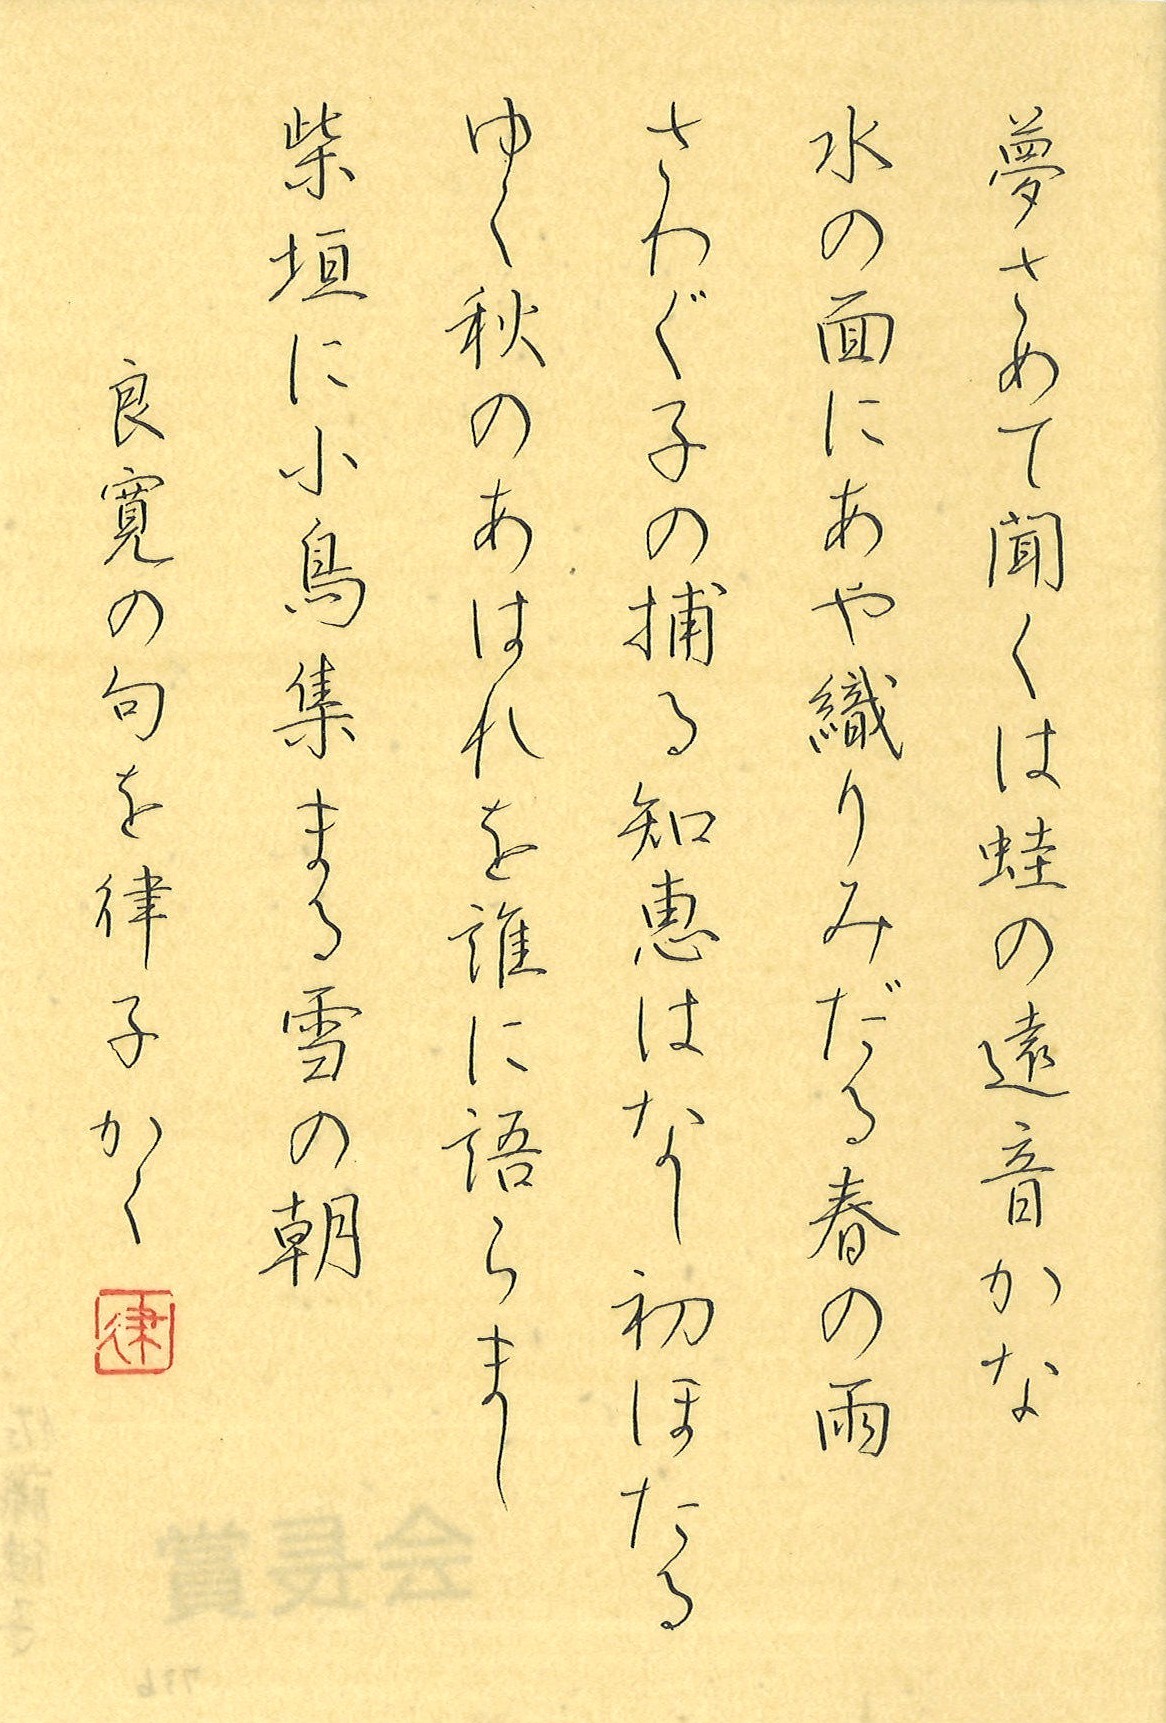 夢さめて聞くは蛙の遠音かな
水の面にあや織りみだる春の雨
さわぐ子の捕る知恵はなし初ほたる
ゆく秋のあはれを誰に語らまし
柴垣に小鳥集まる雪の朝
良寛の句を律子かく
律
会長賞